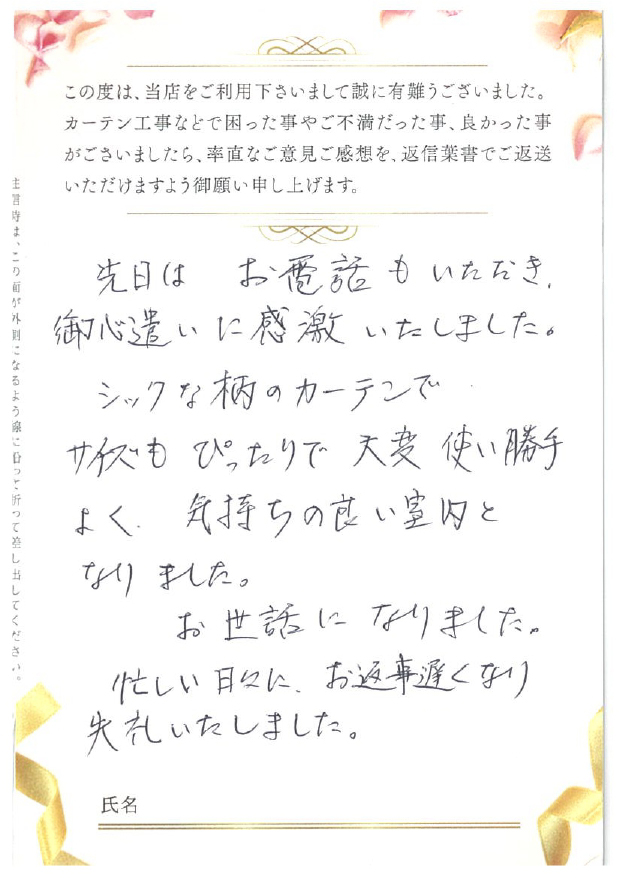 この度は、当店をご利用下さいまして誠に有難うございました。
カーテン工事などで困った事やご不満だった事、良かった事
がございましたら、率直なご意見ご感想を、返信葉書でご返送
いただけますよう御願い申し上げます。
先日は お電話もいただき、
御心遣いに感激いたしました。
シックな柄のカーテンで
サイズも ぴったりで 大変 使い勝手
よく、気持ちの良い室内と
なりました。
お世話に なりました。
忙しい日々に、お返事遅くなり
失礼いたしました。
氏名
は、この面が外側になるよう線に沿って折って差し出してください。